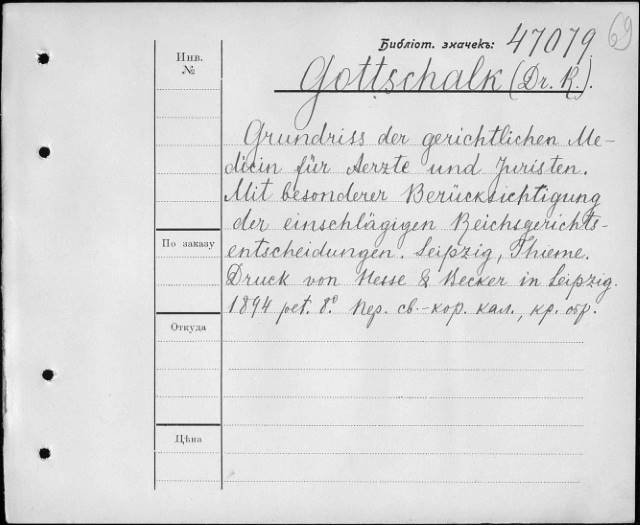 69
Библіот. значекъ: 47079
Инв.
№
Gottschalk (Dr. R.).
Grundriss der gerichtlichen Me-
dicin für Aerzte und Juristen.
Mit besonderer Berücksichtigung
der einschlägigen Reichsgerichts-
entscheidungen. Leipzig, Thieme.
Druck von Hesse & Becker in Leipzig.
1894 pet. 8º. Пер. св.-кор. кал., кр. обр.
По заказу
Откуда
Цѣна